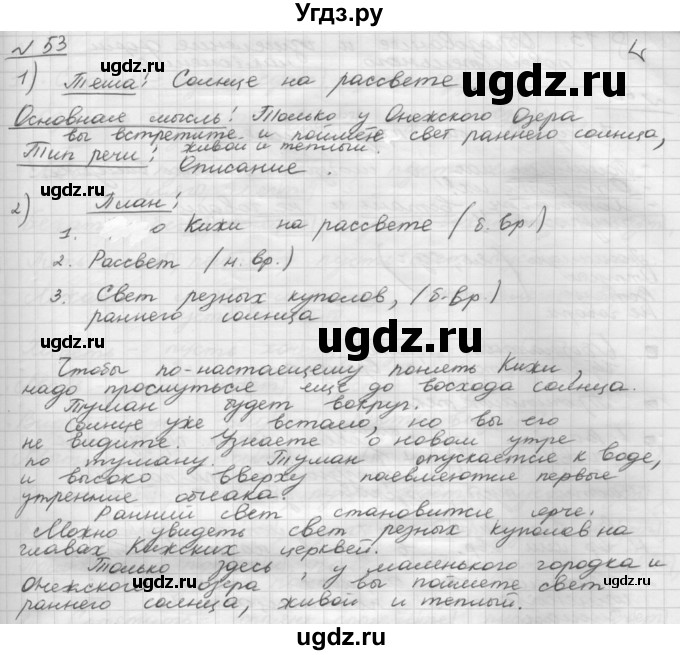 Угдз.ру
№ 53
1) Тема: Солнце на рассвете
Основная мысль: Только у Онежского Озера
вы встретите и поймете свет раннего солнца,
живой и теплый.
Тип речи: Описание.
2) План:
1. о Кижи на рассвете (б. вр.)
2. Рассвет (н. вр.)
3. Свет резных куполов, (б. вр.)
раннего солнца
Чтобы по-настаещему понять Кижи,
надо проснуться еще до восхода солнца.
Туман будет вокруг.
Солнце уже встало, но вы его
не видите. Узнаете о новом утре
по туману. Туман опускается к воде,
и высоко вверху появляются первые
утренние облака.
Ранний свет становится ярче.
Можно увидеть свет резных куполов на
главах Кижских церквей.
Только здесь, у маленького городка и
Онежского озера, вы поймете свет
раннего солнца, живой и теплый.
ugdz.ru
ugdz.ru
ugdz.ru
ugdz.ru
ugdz.ru
ugdz.ru
ugdz.ru
ugdz.ru
ugdz.ru
ugdz.ru
ugdz.ru